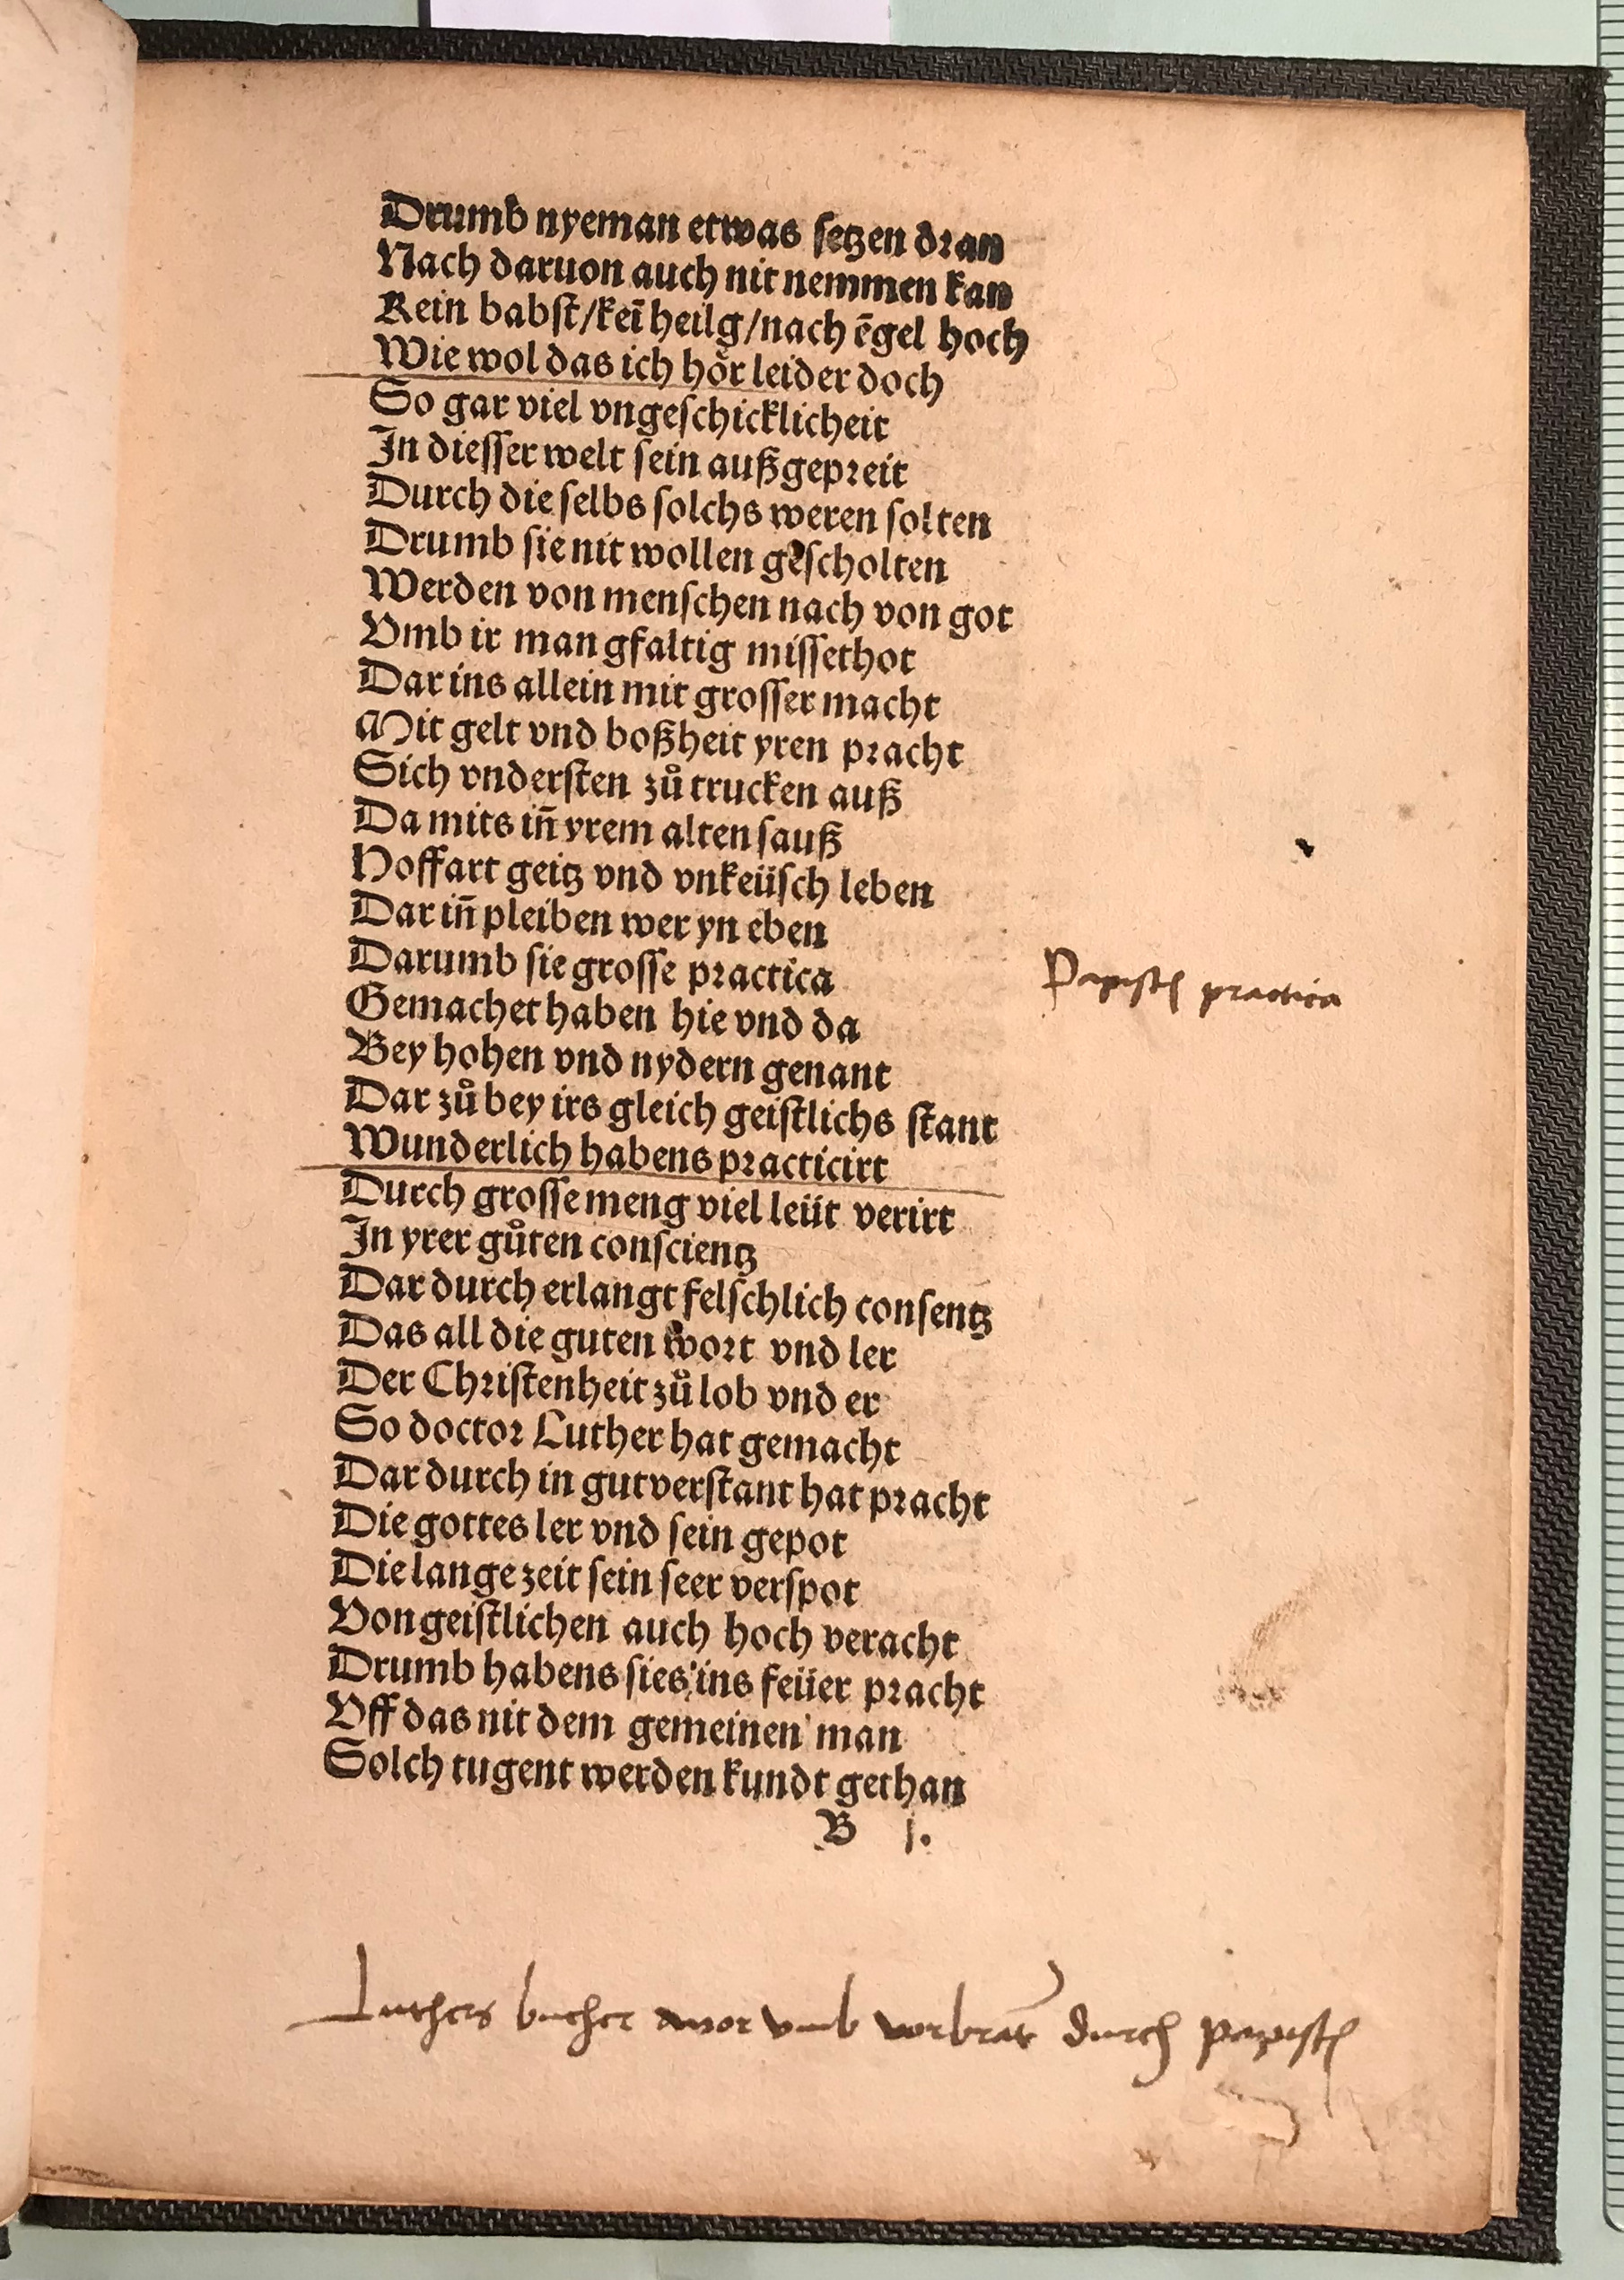 Drumb nyeman etwas setzen dran
Nach daruon auch nit nemmen kan
Kein babst/keī heilg/nach ēgel hoch
Wie wol das ich hoͤr leider doch
So gar viel vngeschicklicheit
In diesser welt sein außgepreit
Durch die selbs solchs weren solten
Drumb sie nit wollen gescholten
Werden von menschen nach von got
Vmb ir mangfaltig missethot
Dar ins allein mit grosser macht
Mit gelt vnd boßheit yren pracht
Sich vndersten zuͦ trucken auß
Da mits in̄ yrem alten sauß
Hoffart geitz vnd vnkeüsch leben
Dar in̄ pleiben wer yn eben
Darumb sie grosse practica
Papisten practica
Gemachet haben hie vnd da
Bey hohen vnd nydern genant
Dar zuͦ bey irs gleich geistlichs stant
Wunderlich habens practicirt
Durch grosse meng viel leüt verirt
In yrer guͦten conscientz
Dar durch erlangt felschlich consentz
Das all die guten wort vnd ler
Der Christenheit zuͦ lob vnd er
So doctor Luther hat gemacht
Dar durch in gut verstant hat pracht
Die gottes ler vnd sein gepot
Die lange zeit sein seer verspot
Von geistlichen auch hoch veracht
Drumb habens sies ins feüer pracht
Vff das nit dem gemeinen man
Solch tugent werden kundt gethan
B j.
Luthers bucher vmb durch papisten